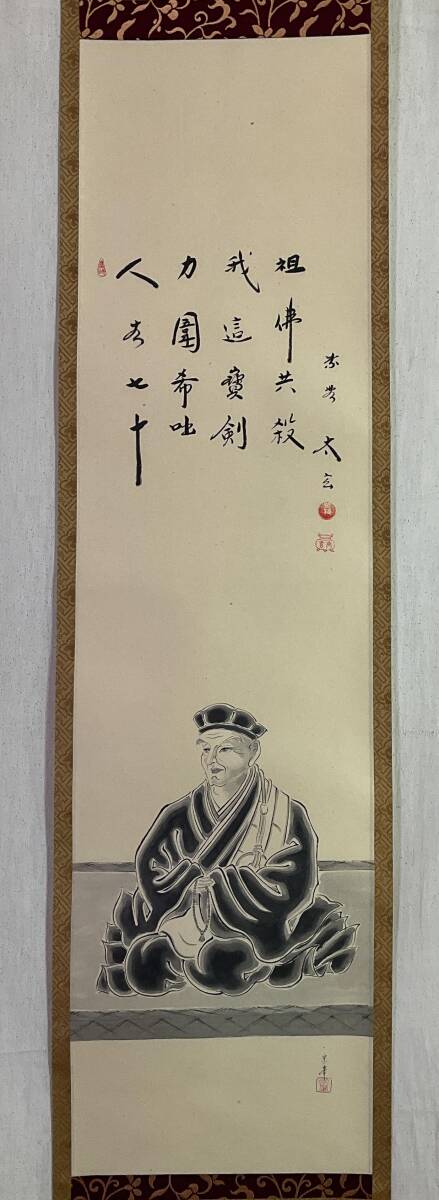 人 七十
力圍希咄
我這寶剣
祖佛共殺
紫野 太玄